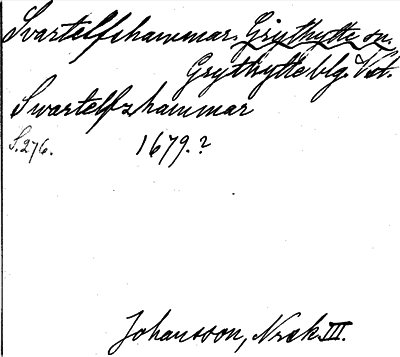 Svartelfshammar. Grythytte sn.
Grythytte blg. Vst.
Swartelfzhammar
S. 276. 1679.?
Johansson, Nrck III.